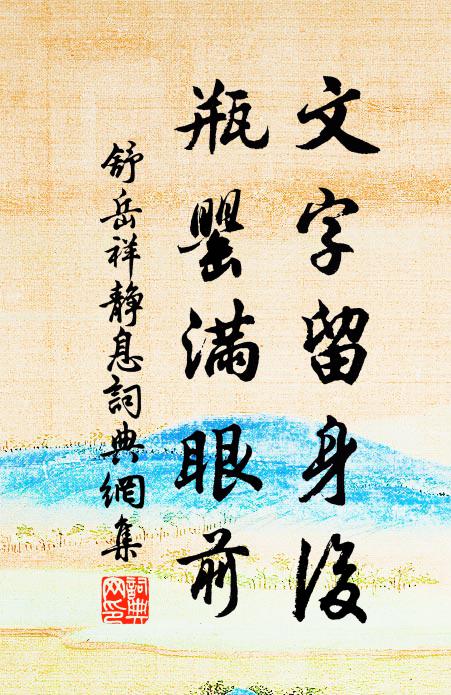 文字留身後
瓶罌滿眼前
舒岳祥靜息詞典網集
詞典網印